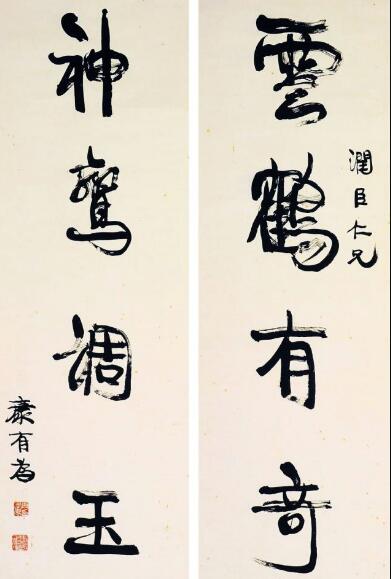 潤臣仁兄
雲鶴有奇
神鸞調玉
康有為